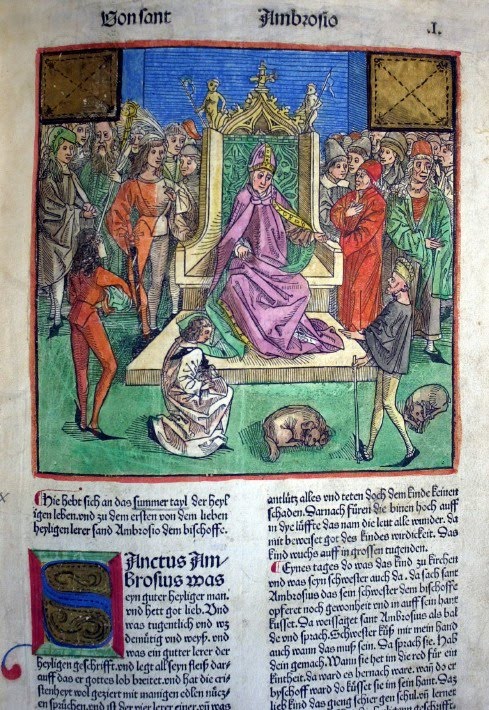 Von sant Ambrosio .I.
Hie hebt sich an das summer tayl der heyl
igen leben. vnd zu dem ersten von dem lieben
heyligen lerer sand Ambrosio dem bischoffe.
SAnctus Am
brosius was
eyn guter heyliger man.
vnd hett got lieb. Vnd
was tugentlich vnd wz
demütig vnd weyß. vnd
was ein gutter lerer der
heyligen geschrifft. vnd legt all seyn fleiß dar/
auff das er gottes lob breitet. vnd hat die cri
stenheyt wol geziert mit manigen edlen nücz
en sprüchen. vnd ist der vier lerer einer. vñ was
antlütz alles vnd teten doch dem kinde keinen
schaden. Darnach fůren die binen hoch auff
in dye lüffte das nam die leut alle wunder. da
mit beweiset got des kindes wirdikeit. Das
kind wuchs auff in grossen tugenden.
Eynes tages do was das kind zů kirchen
vnd was seyn schwester auch da. da sach sant
Ambrosius das sein schwester dem bischoffe
opferet noch gewonheit vnd in auff sein hant
kusset. Da weissaget sant Ambrosius als bal
de vnd sprach. Schwester küß mir mein hand
auch wann das muß sein. Da sprach sie. Hab
dein gemach. Wann sie het im die red für ein
kintheit. da ward es hernach ware. wañ do er
byschoff ward do küsset sie im sein hant. Daz
lieb kind das gieng schier gen schul. vñ lernet